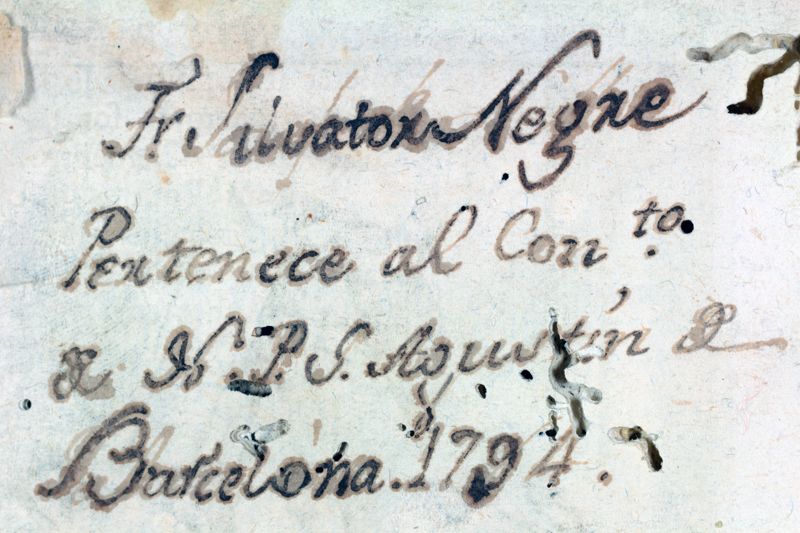 Fr Salvator Negre
Pertenece al Con.to
de N. P. S. Agustín de
Barcelona. 1794.